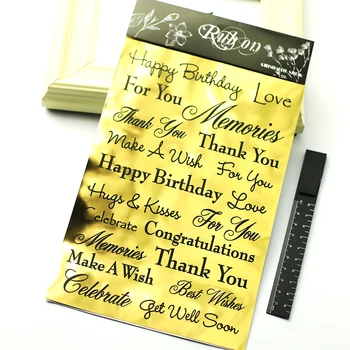 Rub on
Happy Birthday Love
For You Memories
Thank You Thank You
Make A Wish For You
Happy Birthday Love
Hugs & Kisses For You
Celebrate Congratulations
Memories Thank You
Make A Wish Best Wishes
Celebrate Get Well Soon